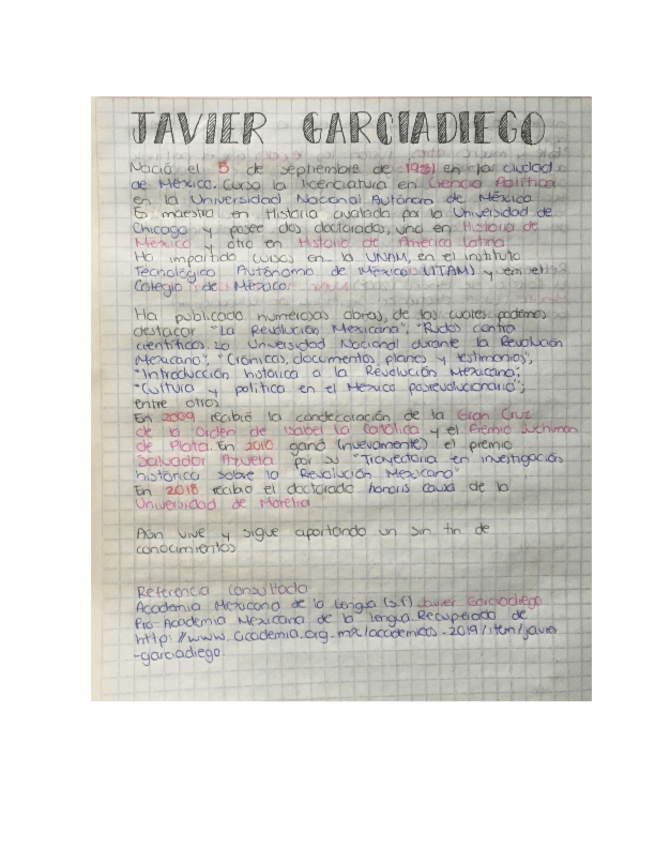 JAVIER GARCIADIEGO
Nació el 5 de septiembre de 1951 en la ciudad
de México. Curso la licenciatura en Ciencia Política
en la Universidad Nacional Autónoma de México
Es maestro en Historia avalada por la Universidad de
Chicago y posee dos doctorados, uno en Historia de
México y otro en Historia de América Latina.
Ha impartido cursos en la UNAM, en el instituto
Tecnológico Autónomo de México (ITAM) y en el
Colegio de México.
Ha publicado numerosas obras, de las cuales podemos
destacar "La Revolución Mexicana", "Rudos contra
científicos. La Universidad Nacional durante la Revolución
Mexicana", "Crónicas, documentos, planes y testimonios",
"Introducción histórica a la Revolución Mexicana",
"Cultura y política en el México posrevolucionario";
entre otros
En 2009 recibió la condecoración de la Gran Cruz
de la Orden de Isabel la Católica y el Premio Juchiman
de Plata. En 2010 ganó (nuevamente) el premio
Salvador Azuela por su "Trayectoria en investigación
histórica sobre la Revolución Mexicana"
En 2018 recibió el doctorado honoris causa de la
Universidad de Morelia
Aún vive y sigue aportando un sin fin de
conocimientos
Referencia consultada
Academia Mexicana de la lengua (s.f) Javier Garciadiego
Academia Mexicana de la lengua. Recuperado de
http://www.academia.org.mx/academicos-2019/item/javier
-garciadiego.